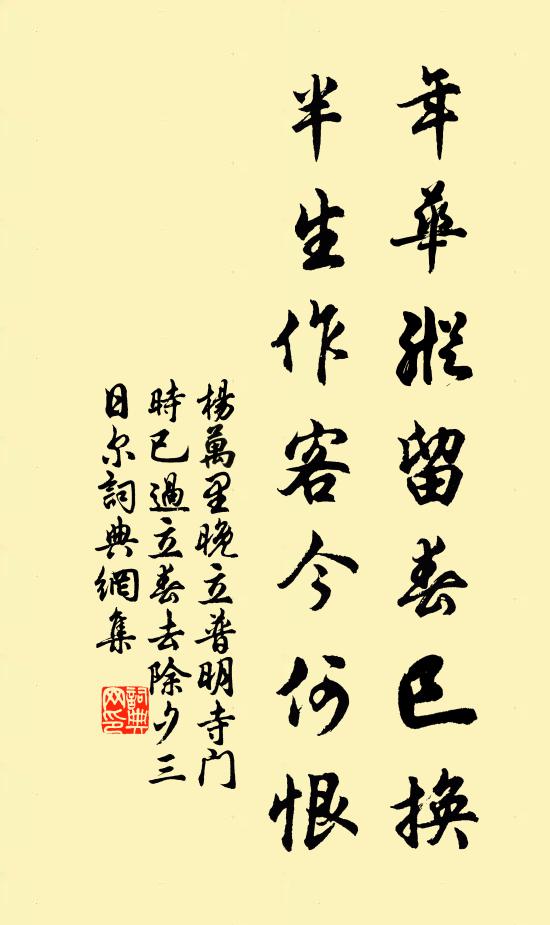 年華縱留春已換
半生作客今何恨
楊萬里晚立普明寺門
時已過立春去除夕三
日尔詞典網集
詞典
网印